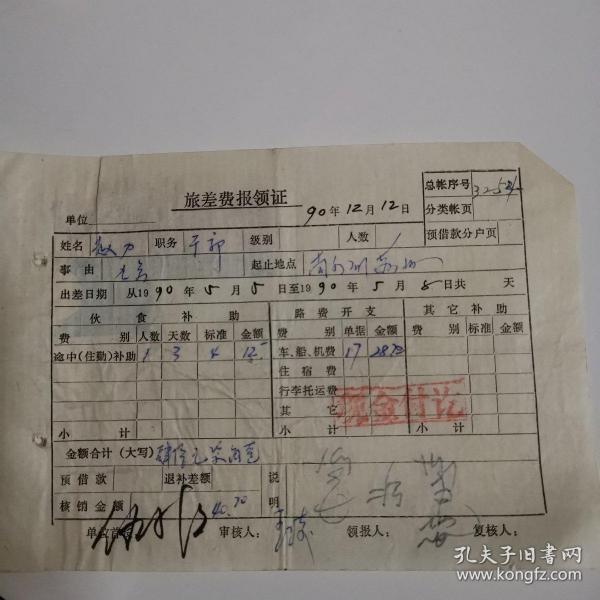 旅差费报领证
总帐序号 3254
单位 90年12月12日 分类帐页
姓名 赵力 职务 干部 级别 人数 预借款分户页
事由 起止地点
出差日期 从1990年5月5日至1990年5月8日共 天
伙食补助 路费开支 其它补助
费别 人数 天数 标准 金额 费别 单据 金额 费别 标准 金额
途中(住勤)补助 1 3 4 12 车、船、机费 17 2870
住宿费
行李托运费
现金付讫
其它
小计 小计 小计
金额合计(大写)
预借款 退补差额 说明
核销金额 40.70
单位首长 审核人: 领报人: 复核人:
孔夫子旧书网
www.kongfz.com